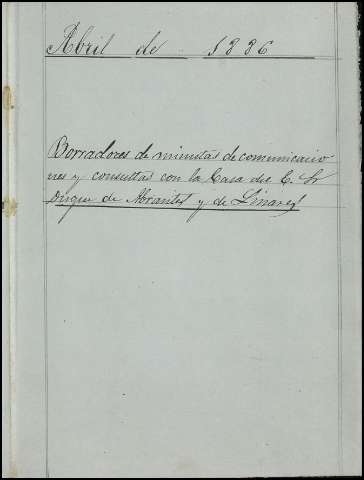 Abril de 1886
Borradores de minutas de comunicacio
nes y consultas con la Casa del E. Sr
Duque de Abrantes y de Linares